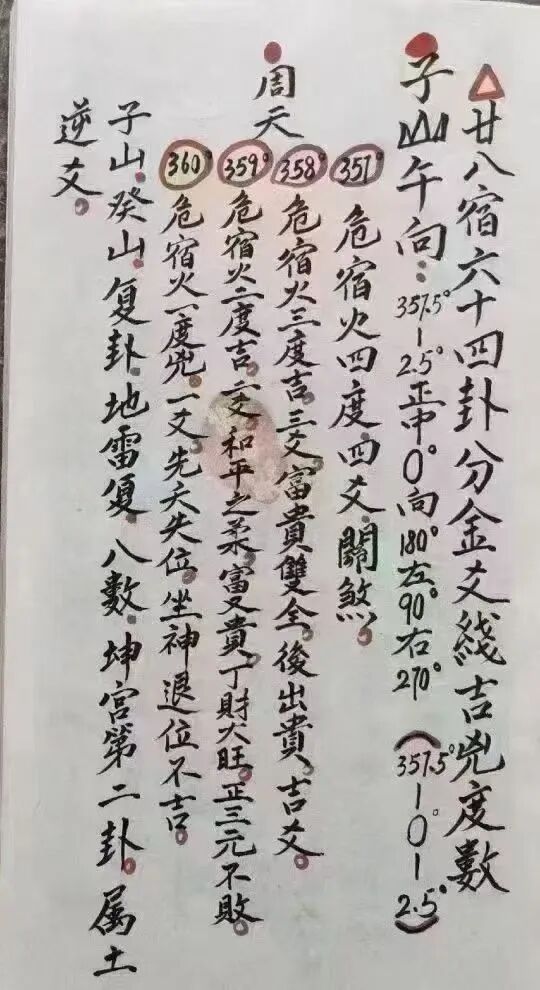 廿八宿六十四卦分金爻綫吉兇度數
子山午向：357.5°-2.5°正中0°向180°左90°右270°（357.5°-0°-2.5°）
357°危宿火四度.四爻.關煞。
358°危宿火三度吉.三爻富貴雙全。後出貴。吉爻。
周天
359°危宿火二度吉。二爻.和平之柔。富又貴。丁財大旺。正三元不敗。
360°危宿火一度兇.一爻.先天失位.坐神退位不吉。
子山.癸山.复卦.地雷復.八數.坤宫第二卦。属土
逆爻。